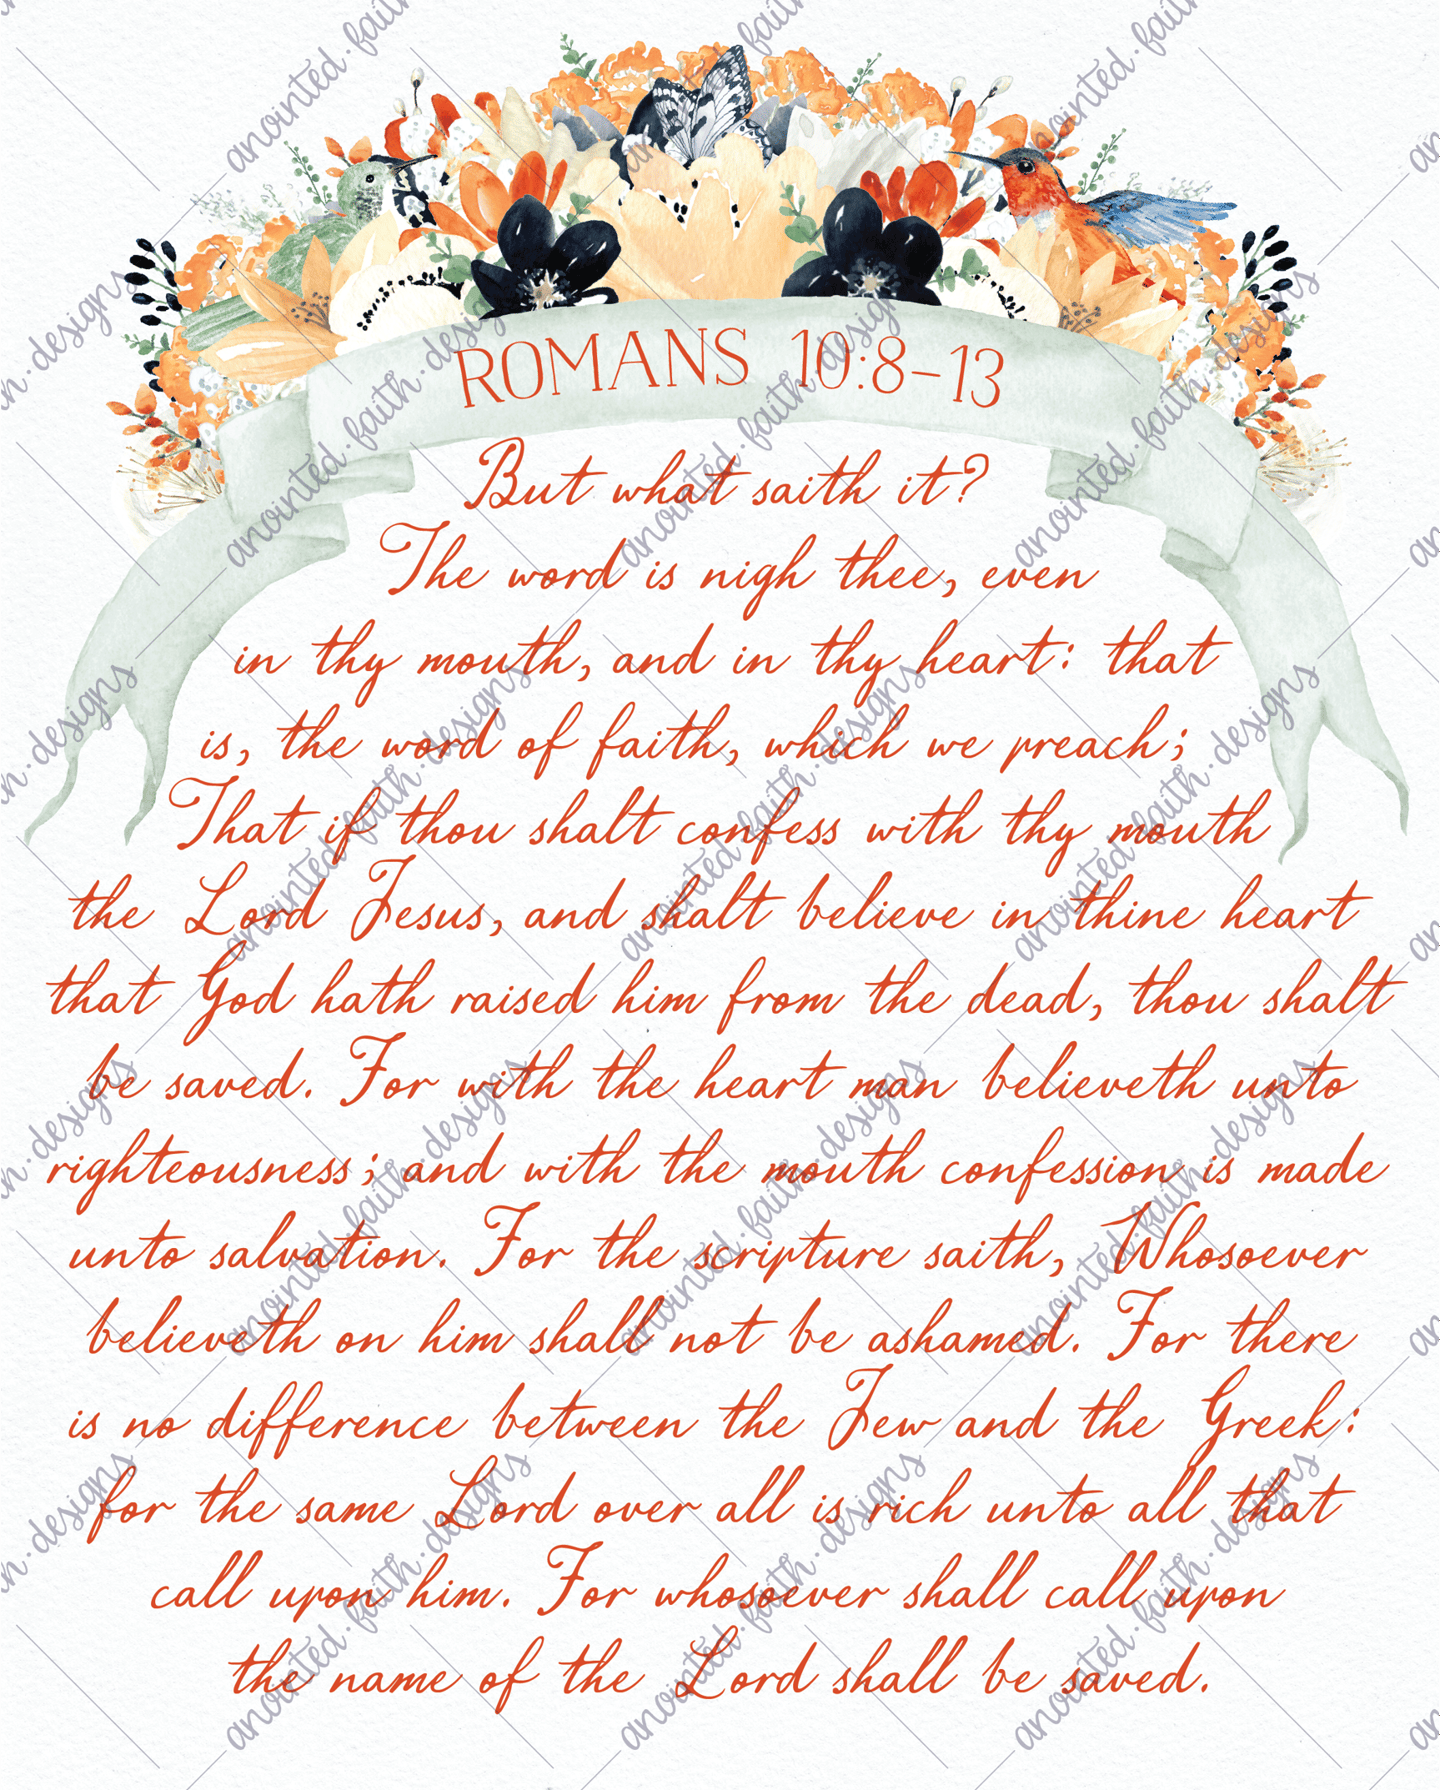 ROMANS 10:8-13
But what saith it?
The word is nigh thee, even
in thy mouth, and in thy heart: that
is, the word of faith, which we preach;
That if thou shalt confess with thy mouth
the Lord Jesus, and shalt believe in thine heart
that God hath raised him from the dead, thou shalt
be saved. For with the heart man believeth unto
righteousness; and with the mouth confession is made
unto salvation. For the scripture saith, Whosoever
believeth on him shall not be ashamed. For there
is no difference between the Jew and the Greek:
for the same Lord over all is rich unto all that
call upon him. For whosoever shall call upon
the name of the Lord shall be saved.
anointed.faith.designs